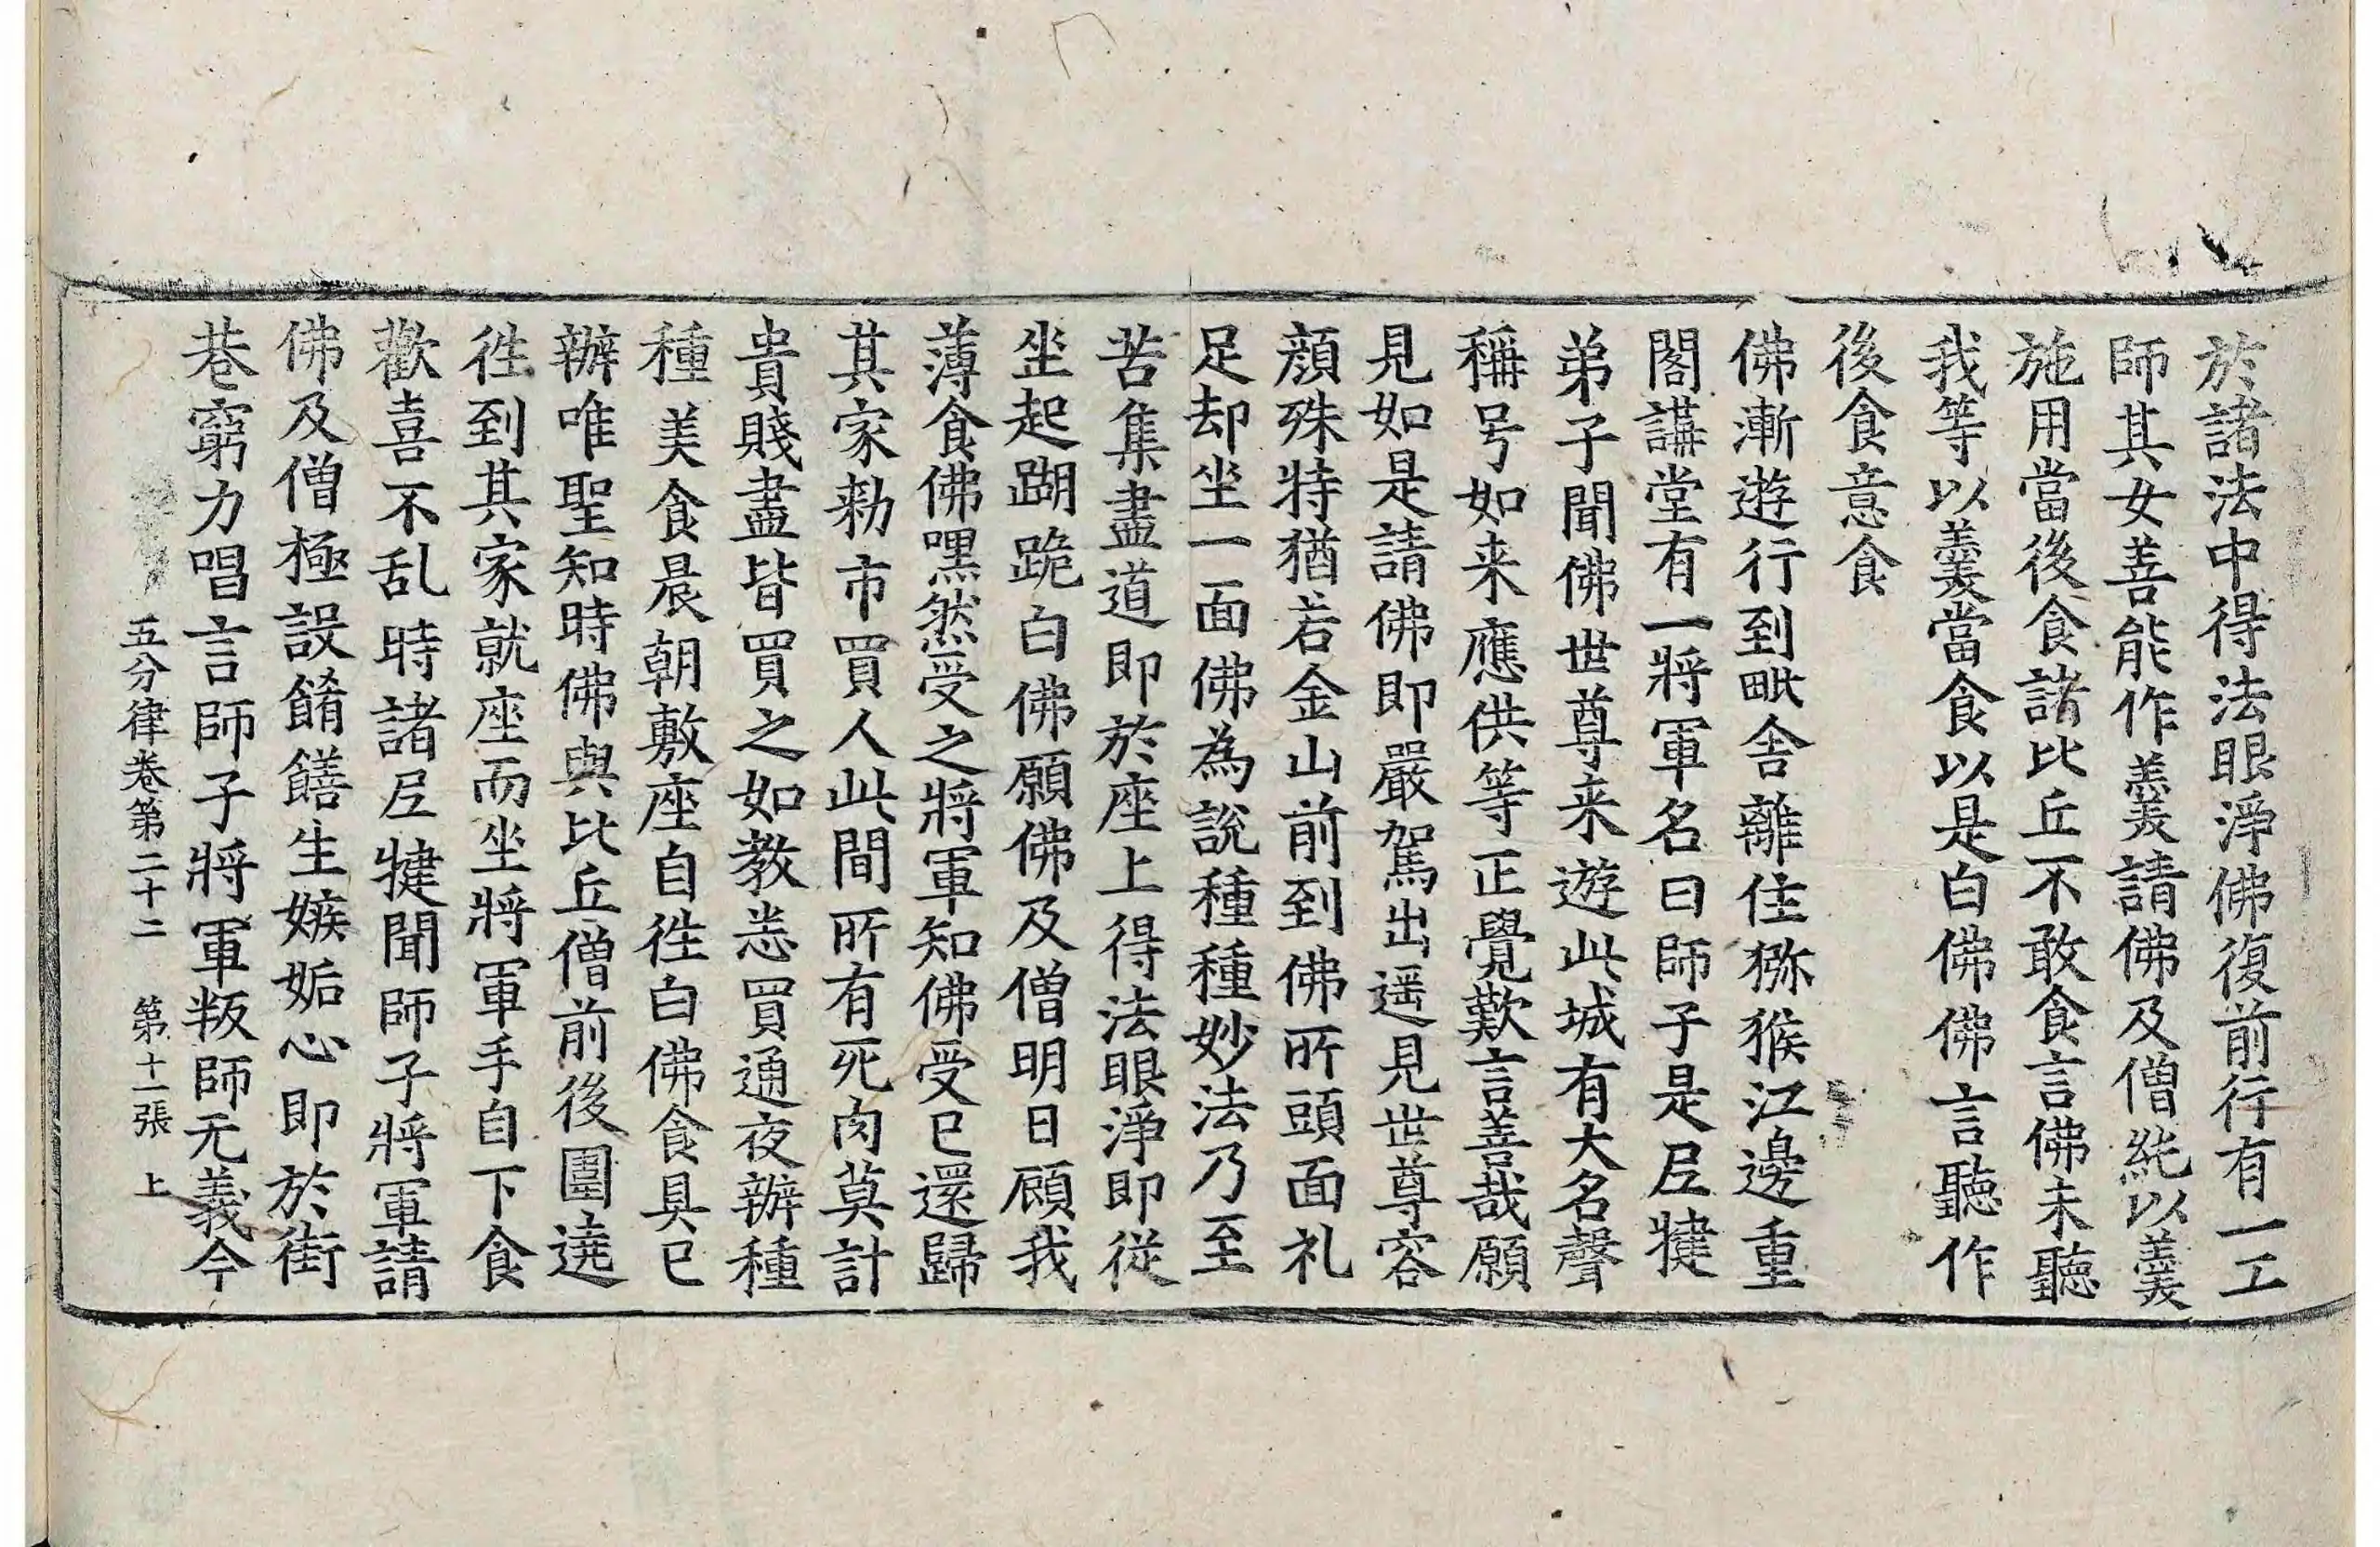 於諸法中得法眼淨佛復前行有一工
師其女善能作羹請佛及僧純以羹
施用當後食諸比丘不敢食言佛未聽
我等以羹當食以是白佛佛言聽作
後食意食
佛漸遊行到毗舍離住獼猴江邊重
閣講堂有一將軍名曰師子是尼揵
弟子聞佛世尊来遊此城有大名聲
稱号如来應供等正覺歎言善哉願
見如是請佛即嚴駕出遥見世尊容
顏殊特猶若金山前到佛所頭面礼
足却坐一面佛為說種種妙法乃至
苦集盡道即於座上得法眼淨即從
坐起蹋跪白佛願佛及僧明日顧我
薄食佛嘿然受之將軍知佛受已還歸
其家勑市買人此間所有死肉莫計
貴賤盡皆買之如教悉買通夜辦種
種美食晨朝敷座自往白佛食具已
辦唯聖知時佛與比丘僧前後圍遶
往到其家就座而坐將軍手自下食
歡喜不乱時諸尼揵聞師子將軍請
佛及僧極設餚饍生嫉妬心即於街
巷窮力唱言師子將軍叛師无義今
五分律卷第二十二 第十一張 上